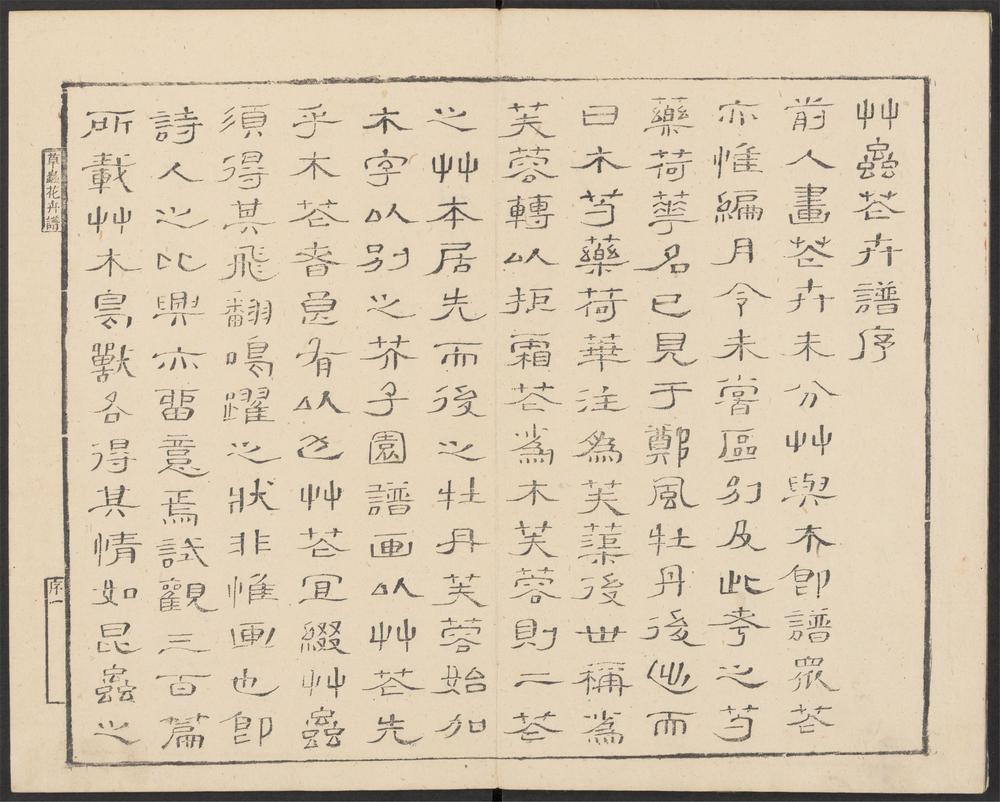 艸蟲苍卉譜序
前人畫苍卉未分艸與木即譜眾苍
亦惟編月令未嘗區別及此考之芍
藥荷華名已見于鄭風牡丹後出而
曰木芍藥荷華注為芙蕖後世稱為
芙蓉轉以拒霜苍為木芙蓉則二苍
之艸本居先而後之牡丹芙蓉始加
木字以別之芥子園譜画以艸苍先
乎木苍者良有以也艸苍宜綴艸蟲
須得其飛翻鳴躍之狀非惟画也即
詩人之比興亦留意焉試觀三百篇
所載艸木鳥獸各得其情如昆蟲之
草蟲花卉譜
序一